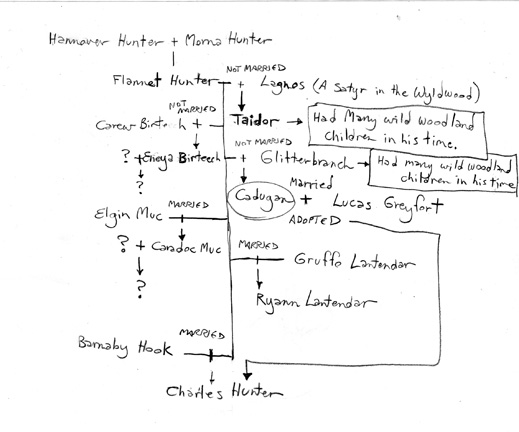 Hannover Hunter + Morna Hunter
NOT MARRIED
Flannet Hunter + Lagnos (A Satyr in the Wyldwood)
NOT MARRIED
Carew Birtech + Taidor
Had Many wild woodland
children in his time.
NOT MARRIED
? + Eieya Birteech + Glitterbranch
Had many wild woodland
children in his time
?
Cadugan Married + Lucas Greyfort
ADOPTED
Elgin Muc MARRIED
? + Caradoc Muc
?
MARRIED
Gruffo Lantendar
Ryann Lantendar
MARRIED
Barnaby Hook
Charles Hunter